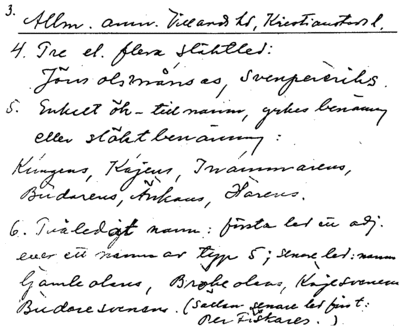 3.
Allm. anm. Villands hd, Kristianstads l.
4. Tre el. flera släktled:
Jöns olsmånsas, Svenpereriks.
5. Enkelt ök-tillnamn, yrkes benämng
eller släktbenämng:
Kungens, Kajens, Tvammarens,
Budarens, Änkans, Hårens.
6. Tvåledigt namn: första led ett adj.
eller ett namn av typ 5; senare led: namn
Gamle olans, Broke olans, Kajesvenens
Budaresvenens. (Sällan senare led först:
Per Fiskares.)